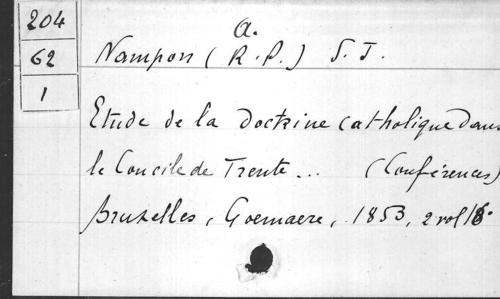 204
62
1
a.
Nampon (R.P.) S.J.
Etude de la doctrine catholique dans
le Concile de Trente... (Conférences)
Bruxelles, Goemaere, 1853, 2 vol